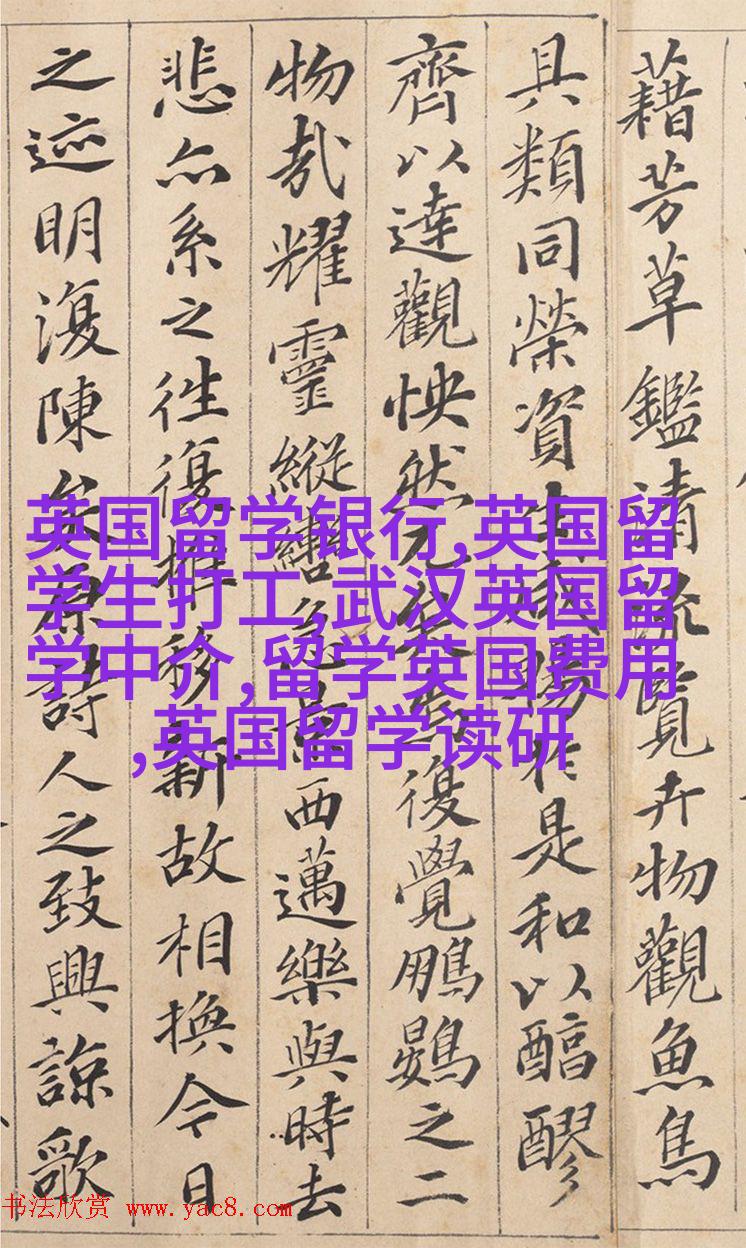 藉芳草鑑清流覽卉物觀魚鳥
具類同榮資生咸暢於是和以醇醪
齊以達觀怏然兀矣焉復覺鵬鷃之二
物哉耀靈縱轡急景西邁樂與時去
悲亦系之往復推移新故相換今日
之迹明復陳矣原詩人之致興諒歌
英国留学银行,英国留
学生打工,武汉英国留
学中介,留学英国费用
,英国留学读研
书法欣赏 www.yac8.com